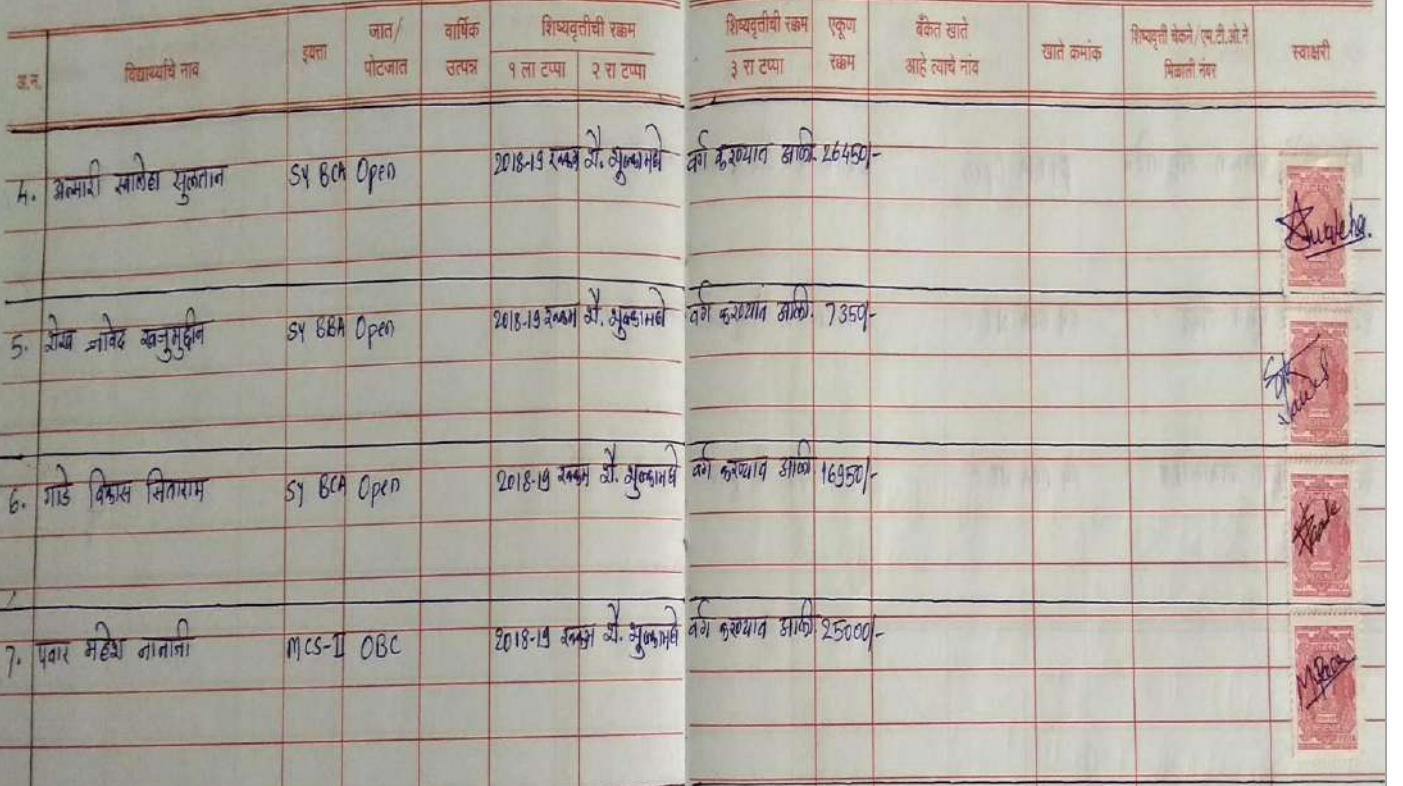 अ.न. विद्यार्थ्याचे नाव इयत्ता जात/ पोटजात वार्षिक उत्पन्न शिष्यवृत्तीची रक्कम १ ला टप्पा २ रा टप्पा शिष्यवृत्तीची रक्कम ३ रा टप्पा एकूण रक्कम बँकेत खाते आहे त्याचे नांव खाते कमांक शिष्यवृत्ती चेकने/एम.टी.ओ.ने मिळाली नंबर स्वाक्षरी
4. अन्सारी स्वालेहा सुलतान SY BCA Open 2018-19 रक्कम शै. शुल्कामध्ये वर्ग करण्यात आली. 26450/- Swaleha.
5. शेख जावेद खजुमुद्दीन SY BBA Open 2018-19 रक्कम शै. शुल्कामध्ये वर्ग करण्यांत आली. 7350/-
6. गाडे विकास सिताराम SY BCA Open 2018-19 रक्कम शै. शुल्कामध्ये वर्ग करण्यात आली 16950/-
7. पवार महेश नानाजी MCS-II OBC 2018-19 रक्कम शै. शुल्कामध्ये वर्ग करण्यात आली. 25000/-